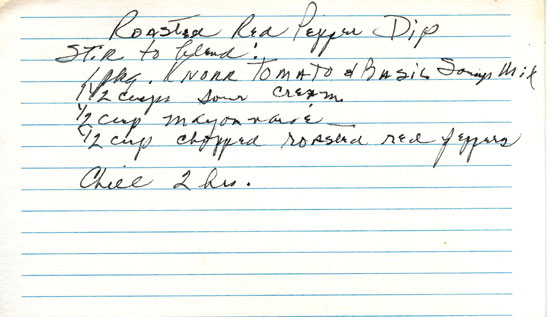 Roasted Red Pepper Dip
Stir to blend:
1 pkg. Knorr Tomato & Basil Soup Mix
1 1/2 cups sour cream
1/2 cup mayonnaise
1/2 cup chopped roasted red peppers
Chill 2 hrs.